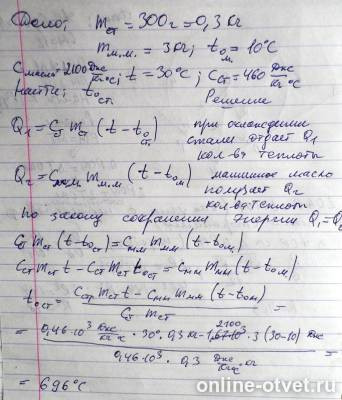 Дано; m ст = 300 г = 0,3 кг
m м.м. = 3 кг; t о м. = 10°C
C масл = 2100 Дж/кг°C; t = 30°C; C ст = 460 Дж/кг°C
Найти; t о ст.
Решение
Q₁ = C ст m ст (t - t о ст) при охлаждении стали отдает Q₁ кол-ва теплоты
Q₂ = C м.м m м.м (t - t о м) машинное масло получает Q₂ кол-ва теплоты
По закону сохранения энергии Q₁ = Q₂
C ст m ст (t - t о ст) = C мм m мм (t - t о м)
C ст m ст t - C ст m ст t о ст = C мм m мм (t - t о м)
t о ст = (C ст m ст t - C мм m мм (t - t о м)) / (C ст m ст) =
= (0,46·10³ Дж/кг °C · 30° · 0,3 кг - 2100 · 3 (30-10) Дж) / (0,46·10³ · 0,3 Дж/кг°C · кг)
= 696°C
online-otvet.ru